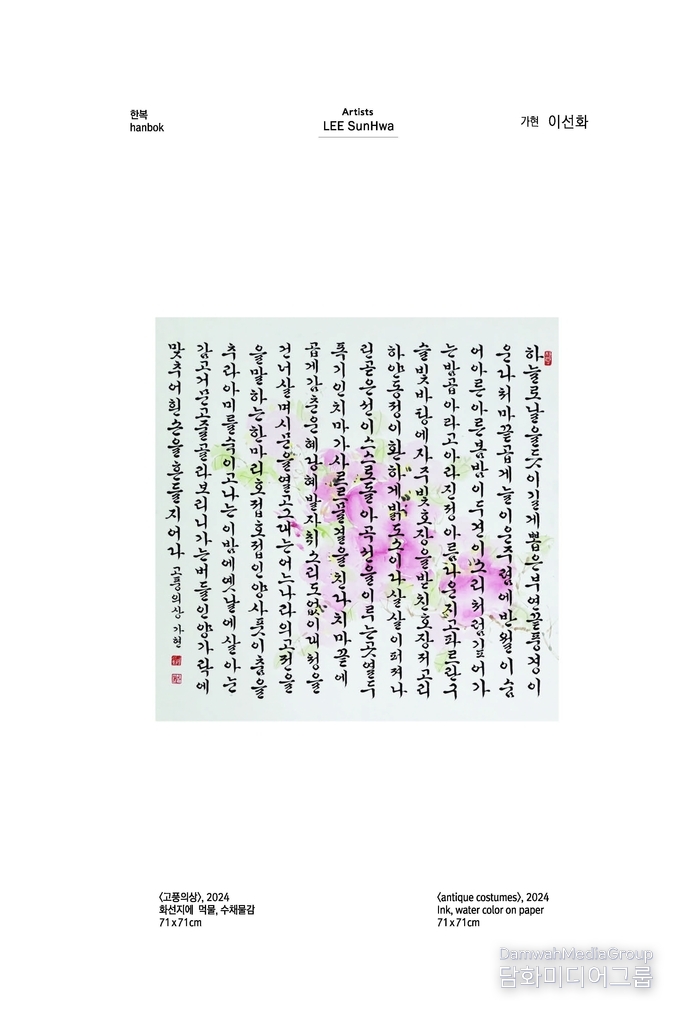 한복
hanbok
Artists
LEE SunHwa
가현 이선화
하늘로날을듯이길게뽑은부연끝풍경이
운다처마끝곱게늘이운주렴에반월이숨
어아른아른봄밤이두견이소리처럼깊어가
는밤곱아라고아라진정아름다운지고파르란구
슬빛바탕에자주빛호장을받친호장저고리
하얀동정이환하게밝도소이다살살이퍼져나
린곧은선이스스로돌아곡선을이루는곳열두
폭기인치마가사르르물결을친다치마끝에
곱게감춘운혜당혜발자취소리도없이대청을
건너살며시문을열고그대는어느나라의고전을
을말하는한마리호접호접인양사풋이춤을
추라아미를숙이고나는이밤에옛날에살아눈
감고거문고줄골라보리니가는버들인양가락에
맞추어흰손을흔들지어다 고풍의상 가현
〈고풍의상〉, 2024
화선지에 먹물, 수채물감
71x71cm
〈antique costumes〉, 2024
Ink, water color on paper
71x71cm
DamwahMediaGroup
담화미디어그룹